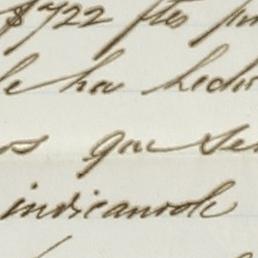 $722 ftes
le ha hecho
os que se
indicandole